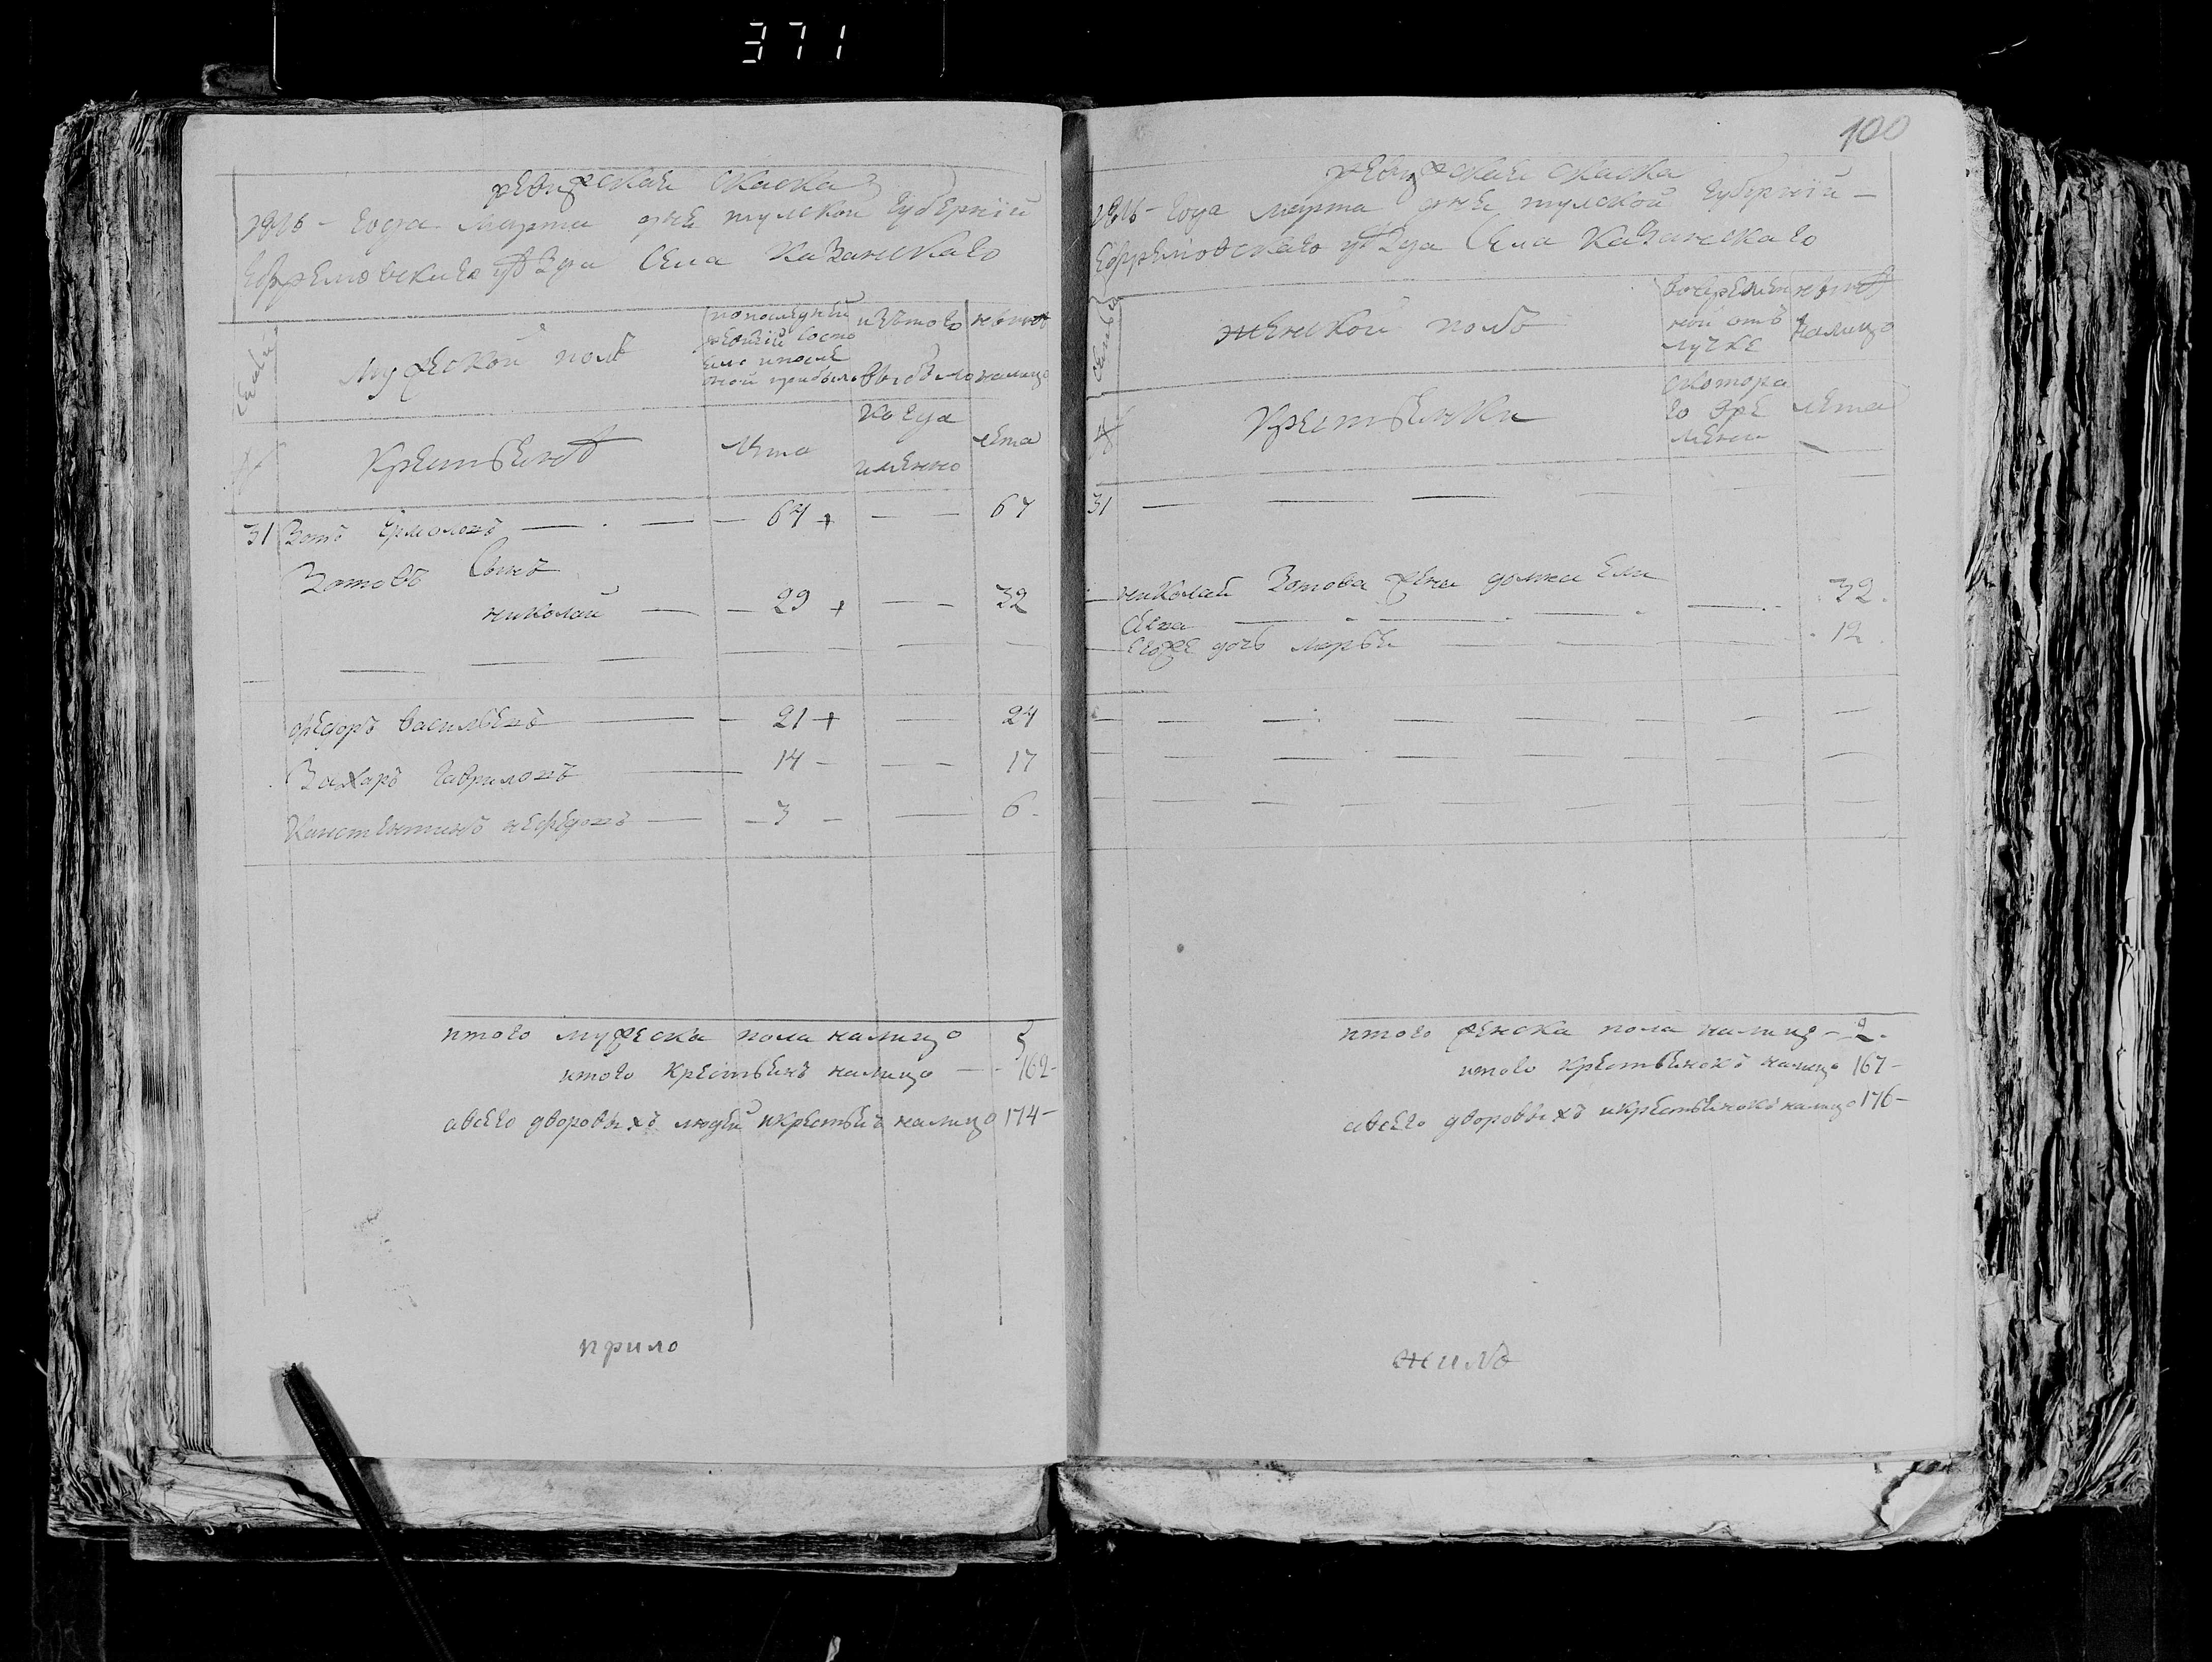 371
ревижская скаска
1816 - года марта дня тулской губернии
Ефремовскаго уѣзда села казанскаго
семьи
мужеской полъ
по последней
ревизии состо
яло и после
оной прибыло
изъ того
выбыло
ныне
налицо
№
крестьяня
лета
когда
имянно
лета
31 Зотъ Ермолаевъ — — — 64 + — — 67
Зотовъ Сынъ
николай — — 29 + — — 32
федоръ васильевъ — — 21 + — 24
Захаръ Гавриловъ — 14 - — — 17
Констентинъ нефедовъ — — 3 - — 6 -
итого мужеска пола налицо 5
итого крестьянъ налицо — - 162 -
а всего дворовыхъ людей и крестьянъ налицо 174 -
прило
100
ревижская скаска
1816 - года марта дня тулской губернии -
Ефремовскаго уѣзда села казанскаго
семьи
женской полъ
во времян
ной отъ
лучке
ныне
налицо
№
крестьянки
с котора
го вре
мени
лета
31 — — — — —
николай Зотова жена домна Ели
сеева — — — — — 32 -
Его же дочь марья — — — 12 -
итого женска пола налицо - 2 -
итого крестьянокъ налицо 167 -
а всего дворовыхъ и крестьянокъ налицо 176 -
жилъ